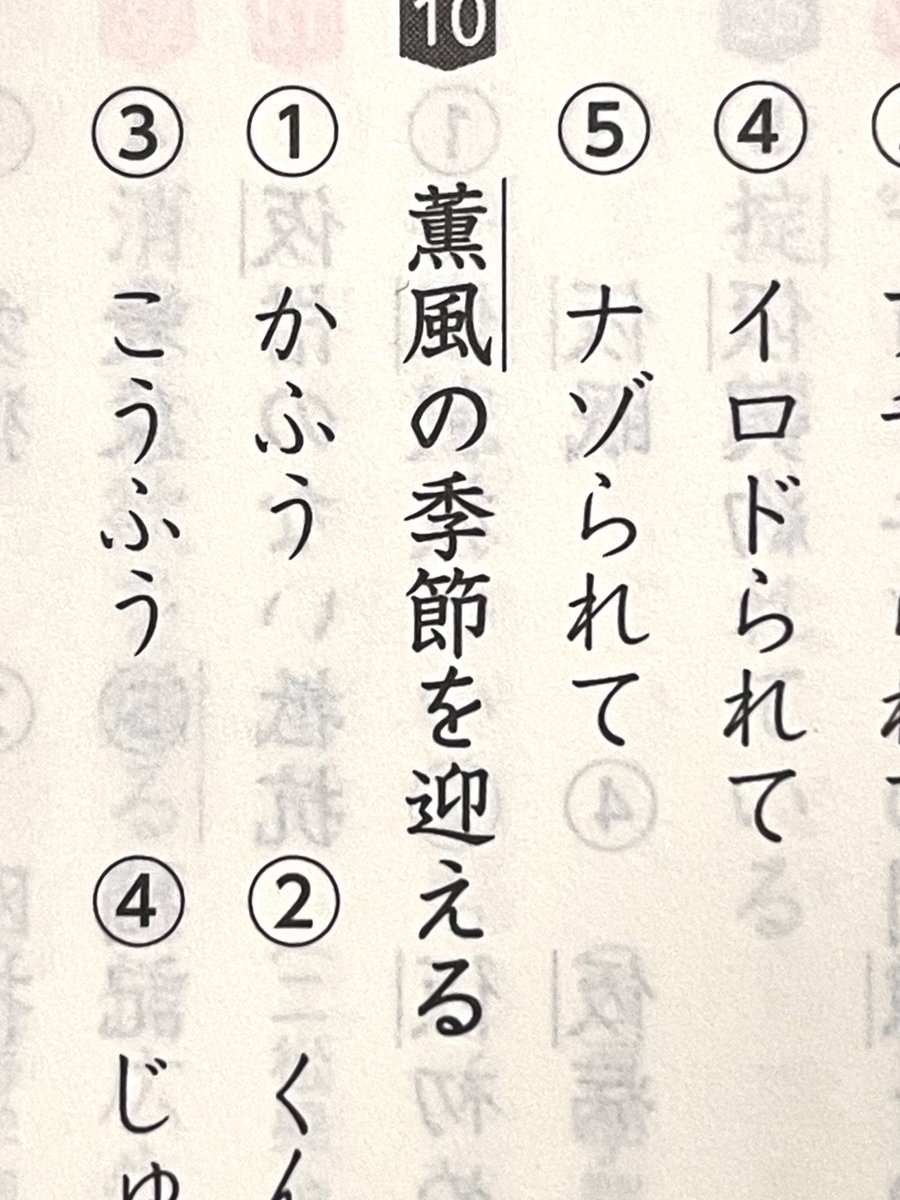 ④ イロドられて
⑤ ナゾられて
10
薫風の季節を迎える
① かふう ② くん
③ こうふう ④ じゅ